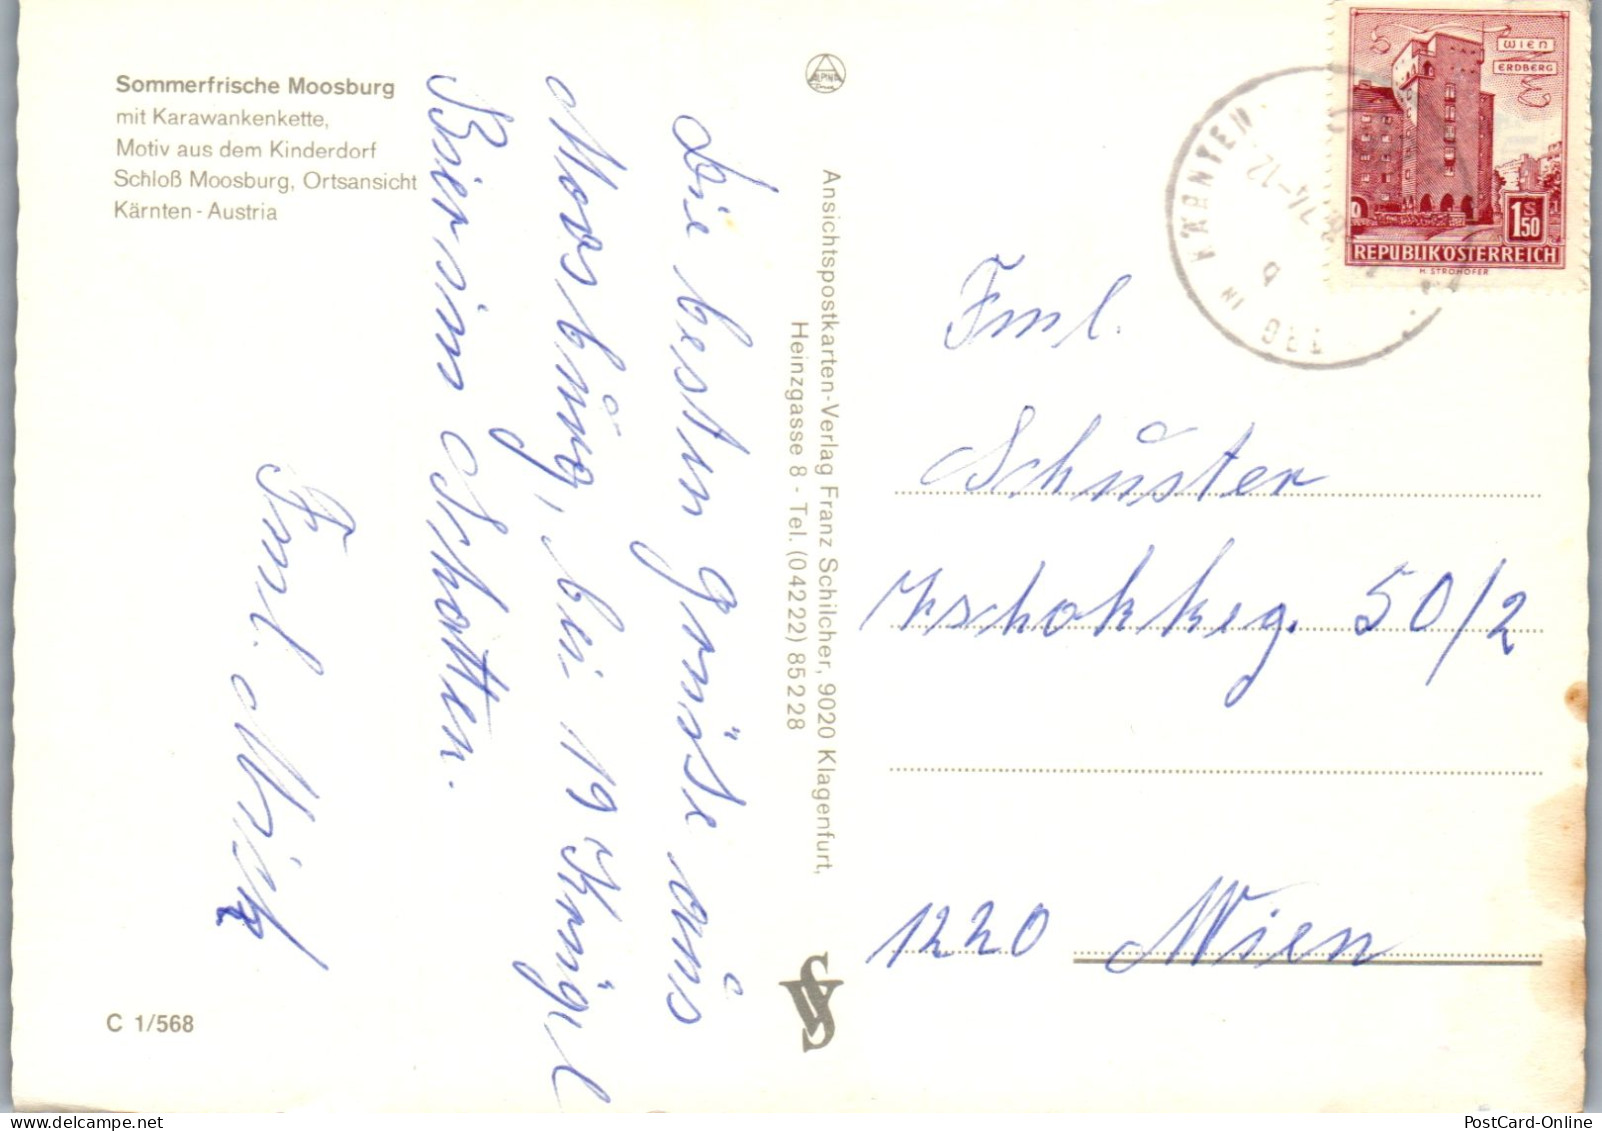 Sommerfrische Moosburg
mit Karawankenkette,
Motiv aus dem Kinderdorf
Schloß Moosburg, Ortsansicht
Kärnten - Austria
Die besten Grüße aus
Moosburg, bei 19 Krügel
Bier im Schatten.
C 1/568
Ansichtspostkarten-Verlag Franz Schilcher, 9020 Klagenfurt,
Heinzgasse 8 - Tel. (04222) 85228
WIEN
ERDBERG
1 S 50
REPUBLIK ÖSTERREICH
H. STROHOFER
IN KÄRNTEN
Schuster
50/2
1220 Wien
PostCard-Online